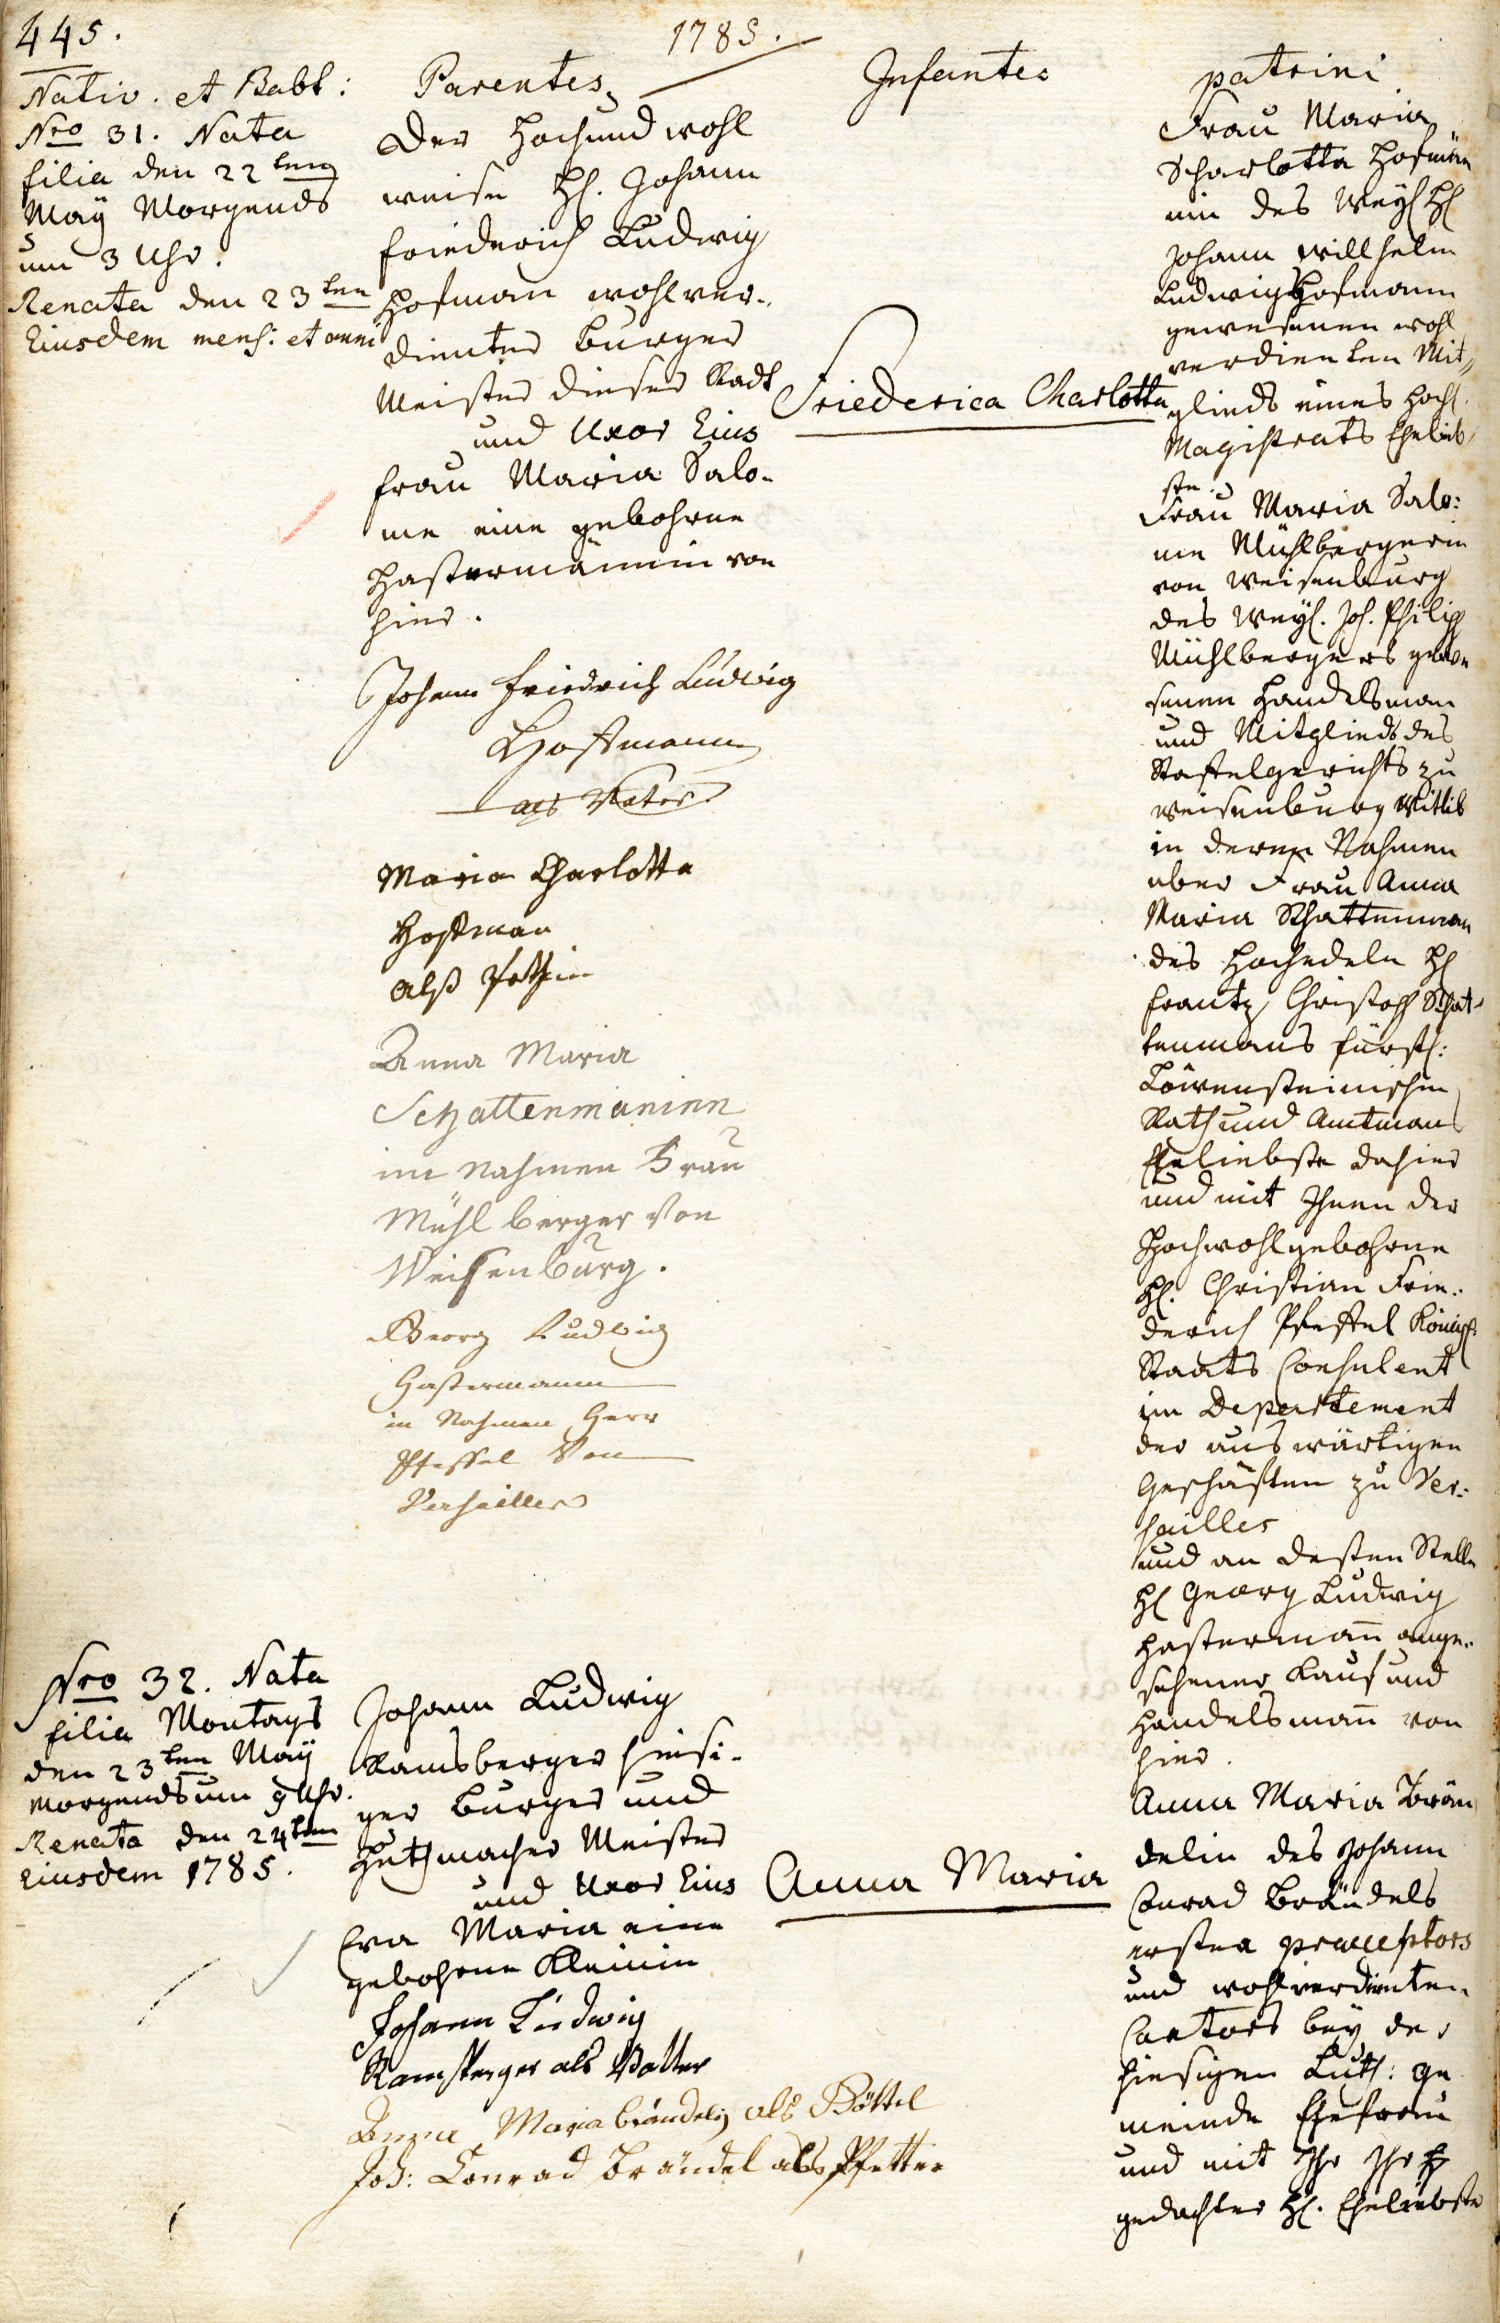 445.
1785.
Nativ. et Babt:
Nro 31. Nata
filia den 22ten
Maÿ Morgends
um 3 Uhr.
Renata den 23ten
Eiusdem mens: et anni
Parentes
Der Hoch und wohl
weise H. Johann
Friederich Ludwig
Hofman wohlver-
dienter Burger
Meister dieser Stadt
und Uxor Eius
Frau Maria Salo-
me eine gebohrne
Hastermännin von
hier.
Johann Friedrich Ludwig
Hoffmann
als Vater
Maria Charlotta
Hoffman
alß
Anna Maria
Schattenmaninn
im Nahmen Frau
Mühlberger Von
Weisenburg.
Georg Ludwig
Hastermann
in Nahmen Herr
Pfeffel Von
Versailles
Infantes
Friederica Charlotta
patrini
Frau Maria
Scharlotta Hofmän
nin des Weyl H
Johann Willhelm
Ludwig Hofmann
gewesenen wohl
verdienten Mit-
glieds eines Hochl.
Magistrats Ehelieb-
ste.
Frau Maria Salo:
me Mühlbergerin
von Weisenburg
des Weyl. Joh. Philipp
Mühlbergers gewe
senen Handelsman
und Mitglieds des
Staffelgerichts zu
Weisenburg Wittib
in deren Nahmen
aber Frau Anna
Maria Schattenman
des Hochedeln H
Frantz Christoph Schat-
tenmans Fürstl:
Löwensteinischen
Rath und Amtmans
Eheliebste dahier
und mit Ihnen der
Hochwohlgebohrne
H. Christian Frie-
derich Pfeffel Königl.
Staats Consulent
im Departement
der auswärtigen
Geschäften zu Ver:
sailles
und an dessen Stelle
H Georg Ludwig
Hastermañ ange-
sehener Kauf und
Handelsmañ von
hier.
Nro 32. Nata
filia Montags
den 23ten Maÿ
Morgends um 9 Uhr.
Renata den 24ten
Eiusdem 1785.
Johann Ludwig
Ramsberger hiesi-
ger Burger und
Huthmacher Meister
und Uxor Eius
Eva Maria eine
gebohrne Kleinin
Johann Ludwig
Ramsperger als Vatter
Anna Maria brändelin als Göttel
Joh: Conrad Brändel als Pfetter
Anna Maria
Anna Maria Brän
delin des Johann
Conrad Brändels
ersten praeceptors
und wohlverdienten
Cantors beÿ der
hiesigen Luth: Ge
meinde Ehefrau
und mit Ihr Ihr
gedachter H. Eheliebste